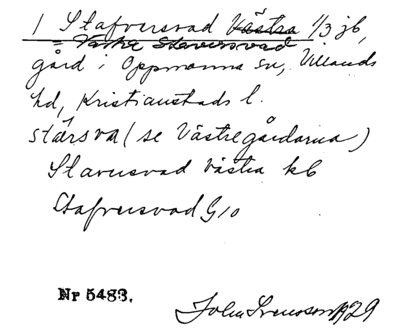 1 Stafversvad Västra 1/3 jb,
= Västra Staversvad
gård i Oppmanna sn, Villands
hd, Kristianstads l.
stårsva (se Västregårdarna)
Staversvad Västra kb
Stafversvad G10
Nr 5483.
John Svensson 1929